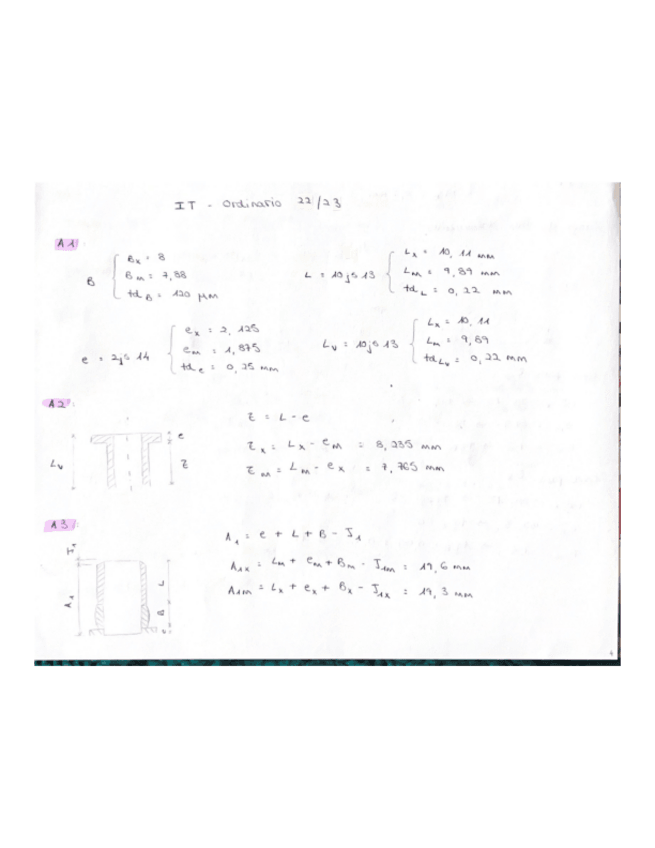 IT - Ordinario 22/23
A1:
B { Bx = 8
Bm = 7,88
tdB = 120 µm
L = 10js13 { Lx = 10,11 mm
Lm = 9,89 mm
tdL = 0,22 mm
e = 2js14 { ex = 2,125
em = 1,875
tde = 0,25 mm
Lv = 10js13 { Lx = 10,11
Lm = 9,89
tdLv = 0,22 mm
A2:
Lv
e
Z
Z = L - e
Zx = Lx - em = 8,235 mm
Zm = Lm - ex = 7,765 mm
A3:
A1
L
B
e
A1 = e + L + B - J1
A1x = Lm + em + Bm - J1m = 19,6 mm
A1m = Lx + ex + Bx - J1x = 19,3 mm